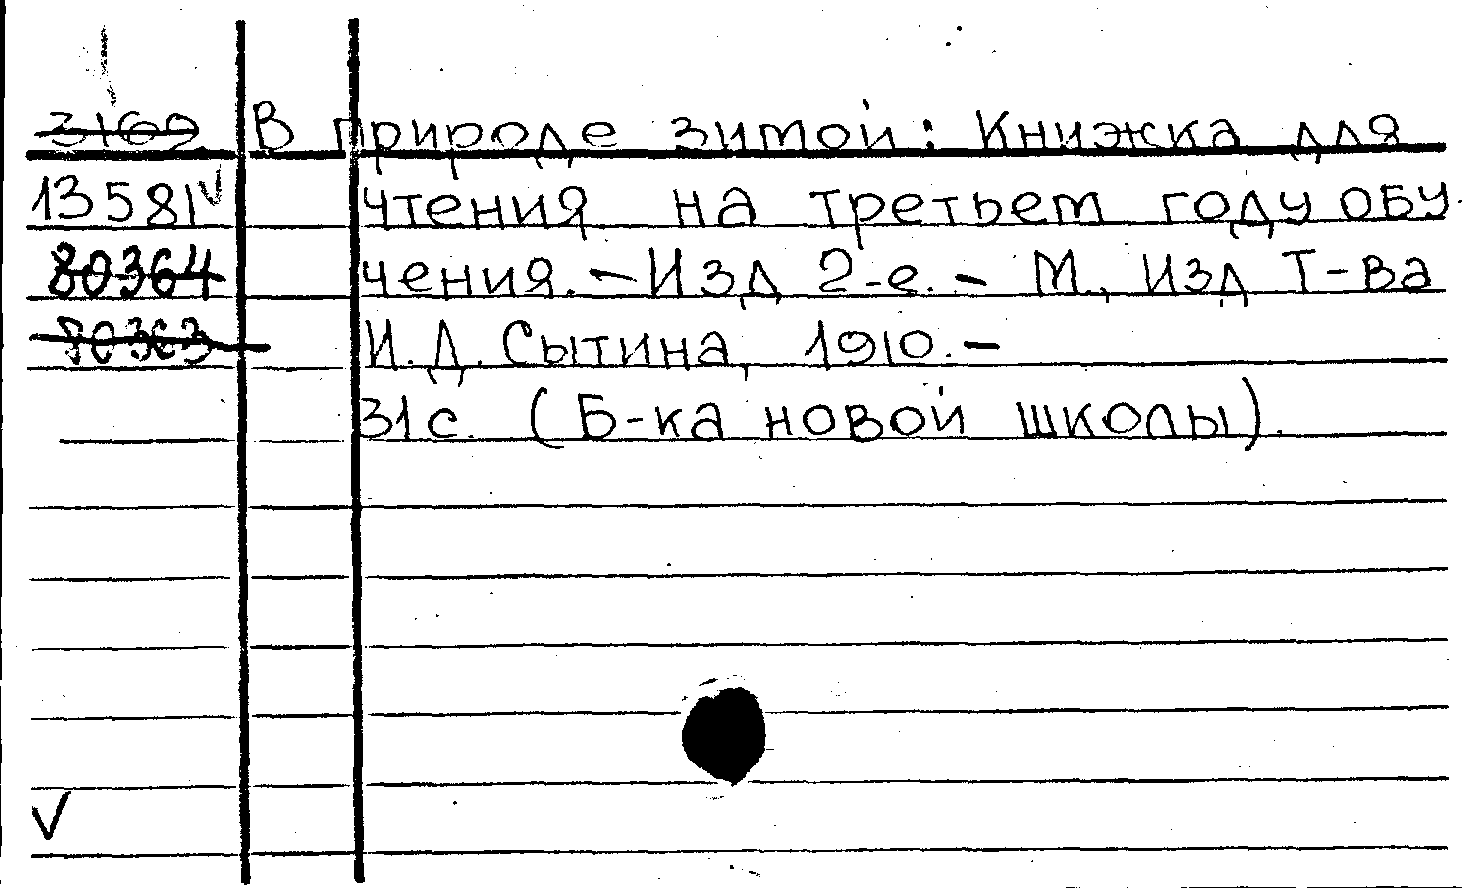 3169 В природе зимой: Книжка для
13581 чтения на третьем году обу
80364 чения. – Изд 2-е. – М., Изд Т-ва
80363 И.Д. Сытина, 1910. –
31с. (Б-ка новой школы).